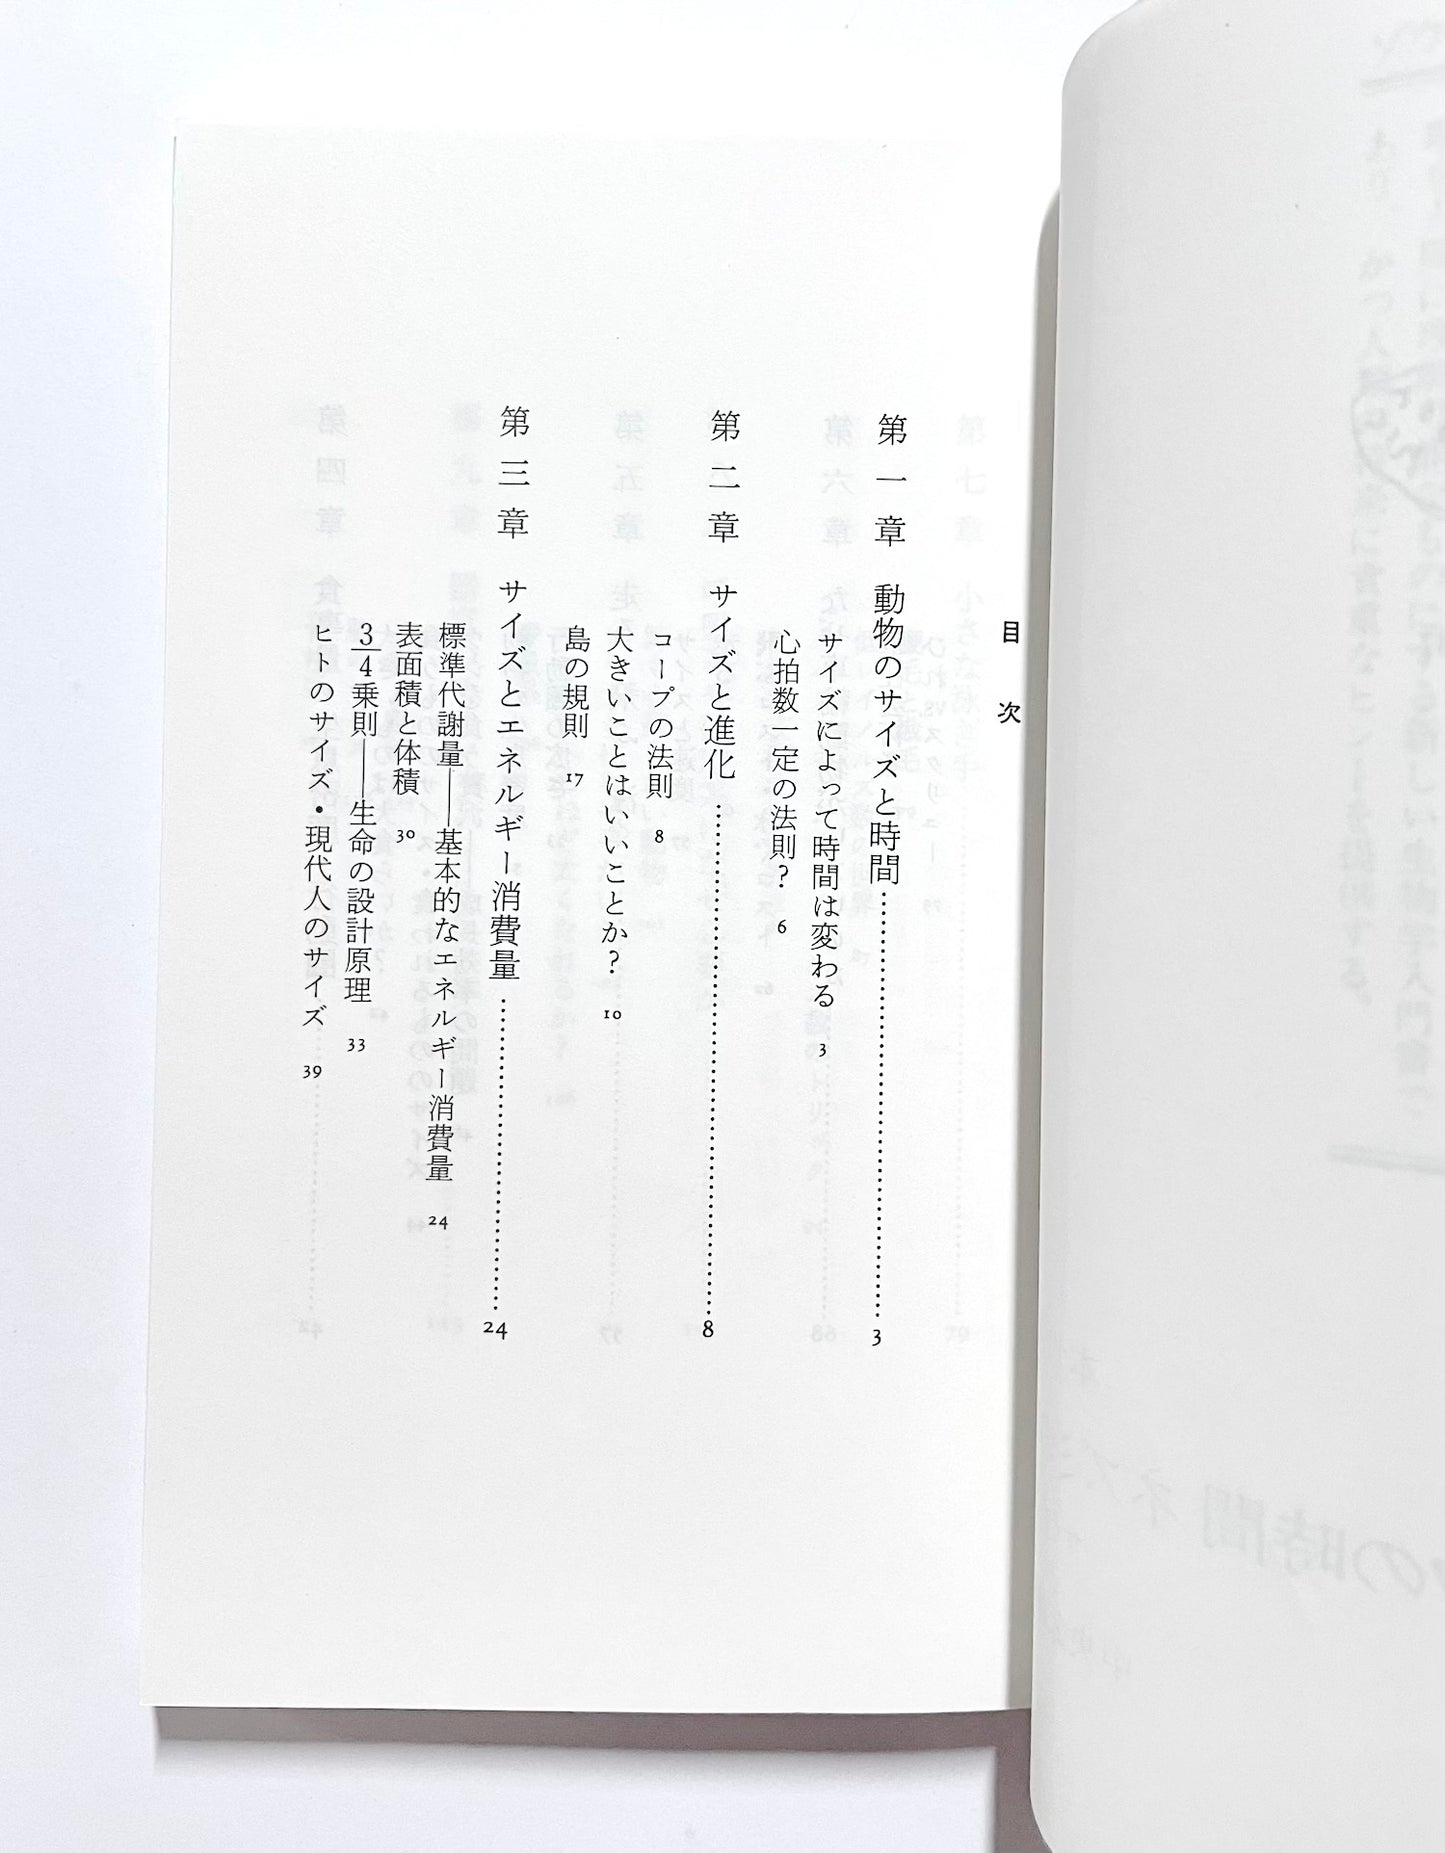 目次
第一章 動物のサイズと時間……………………………3
サイズによって時間は変わる 3
心拍数一定の法則？ 6
第二章 サイズと進化……………………………8
コープの法則 8
大きいことはいいことか？ 10
島の規則 17
第三章 サイズとエネルギー消費量……………………………24
標準代謝量――基本的なエネルギー消費量 24
表面積と体積 30
3/4乗則――生命の設計原理 33
ヒトのサイズ・現代人のサイズ 39